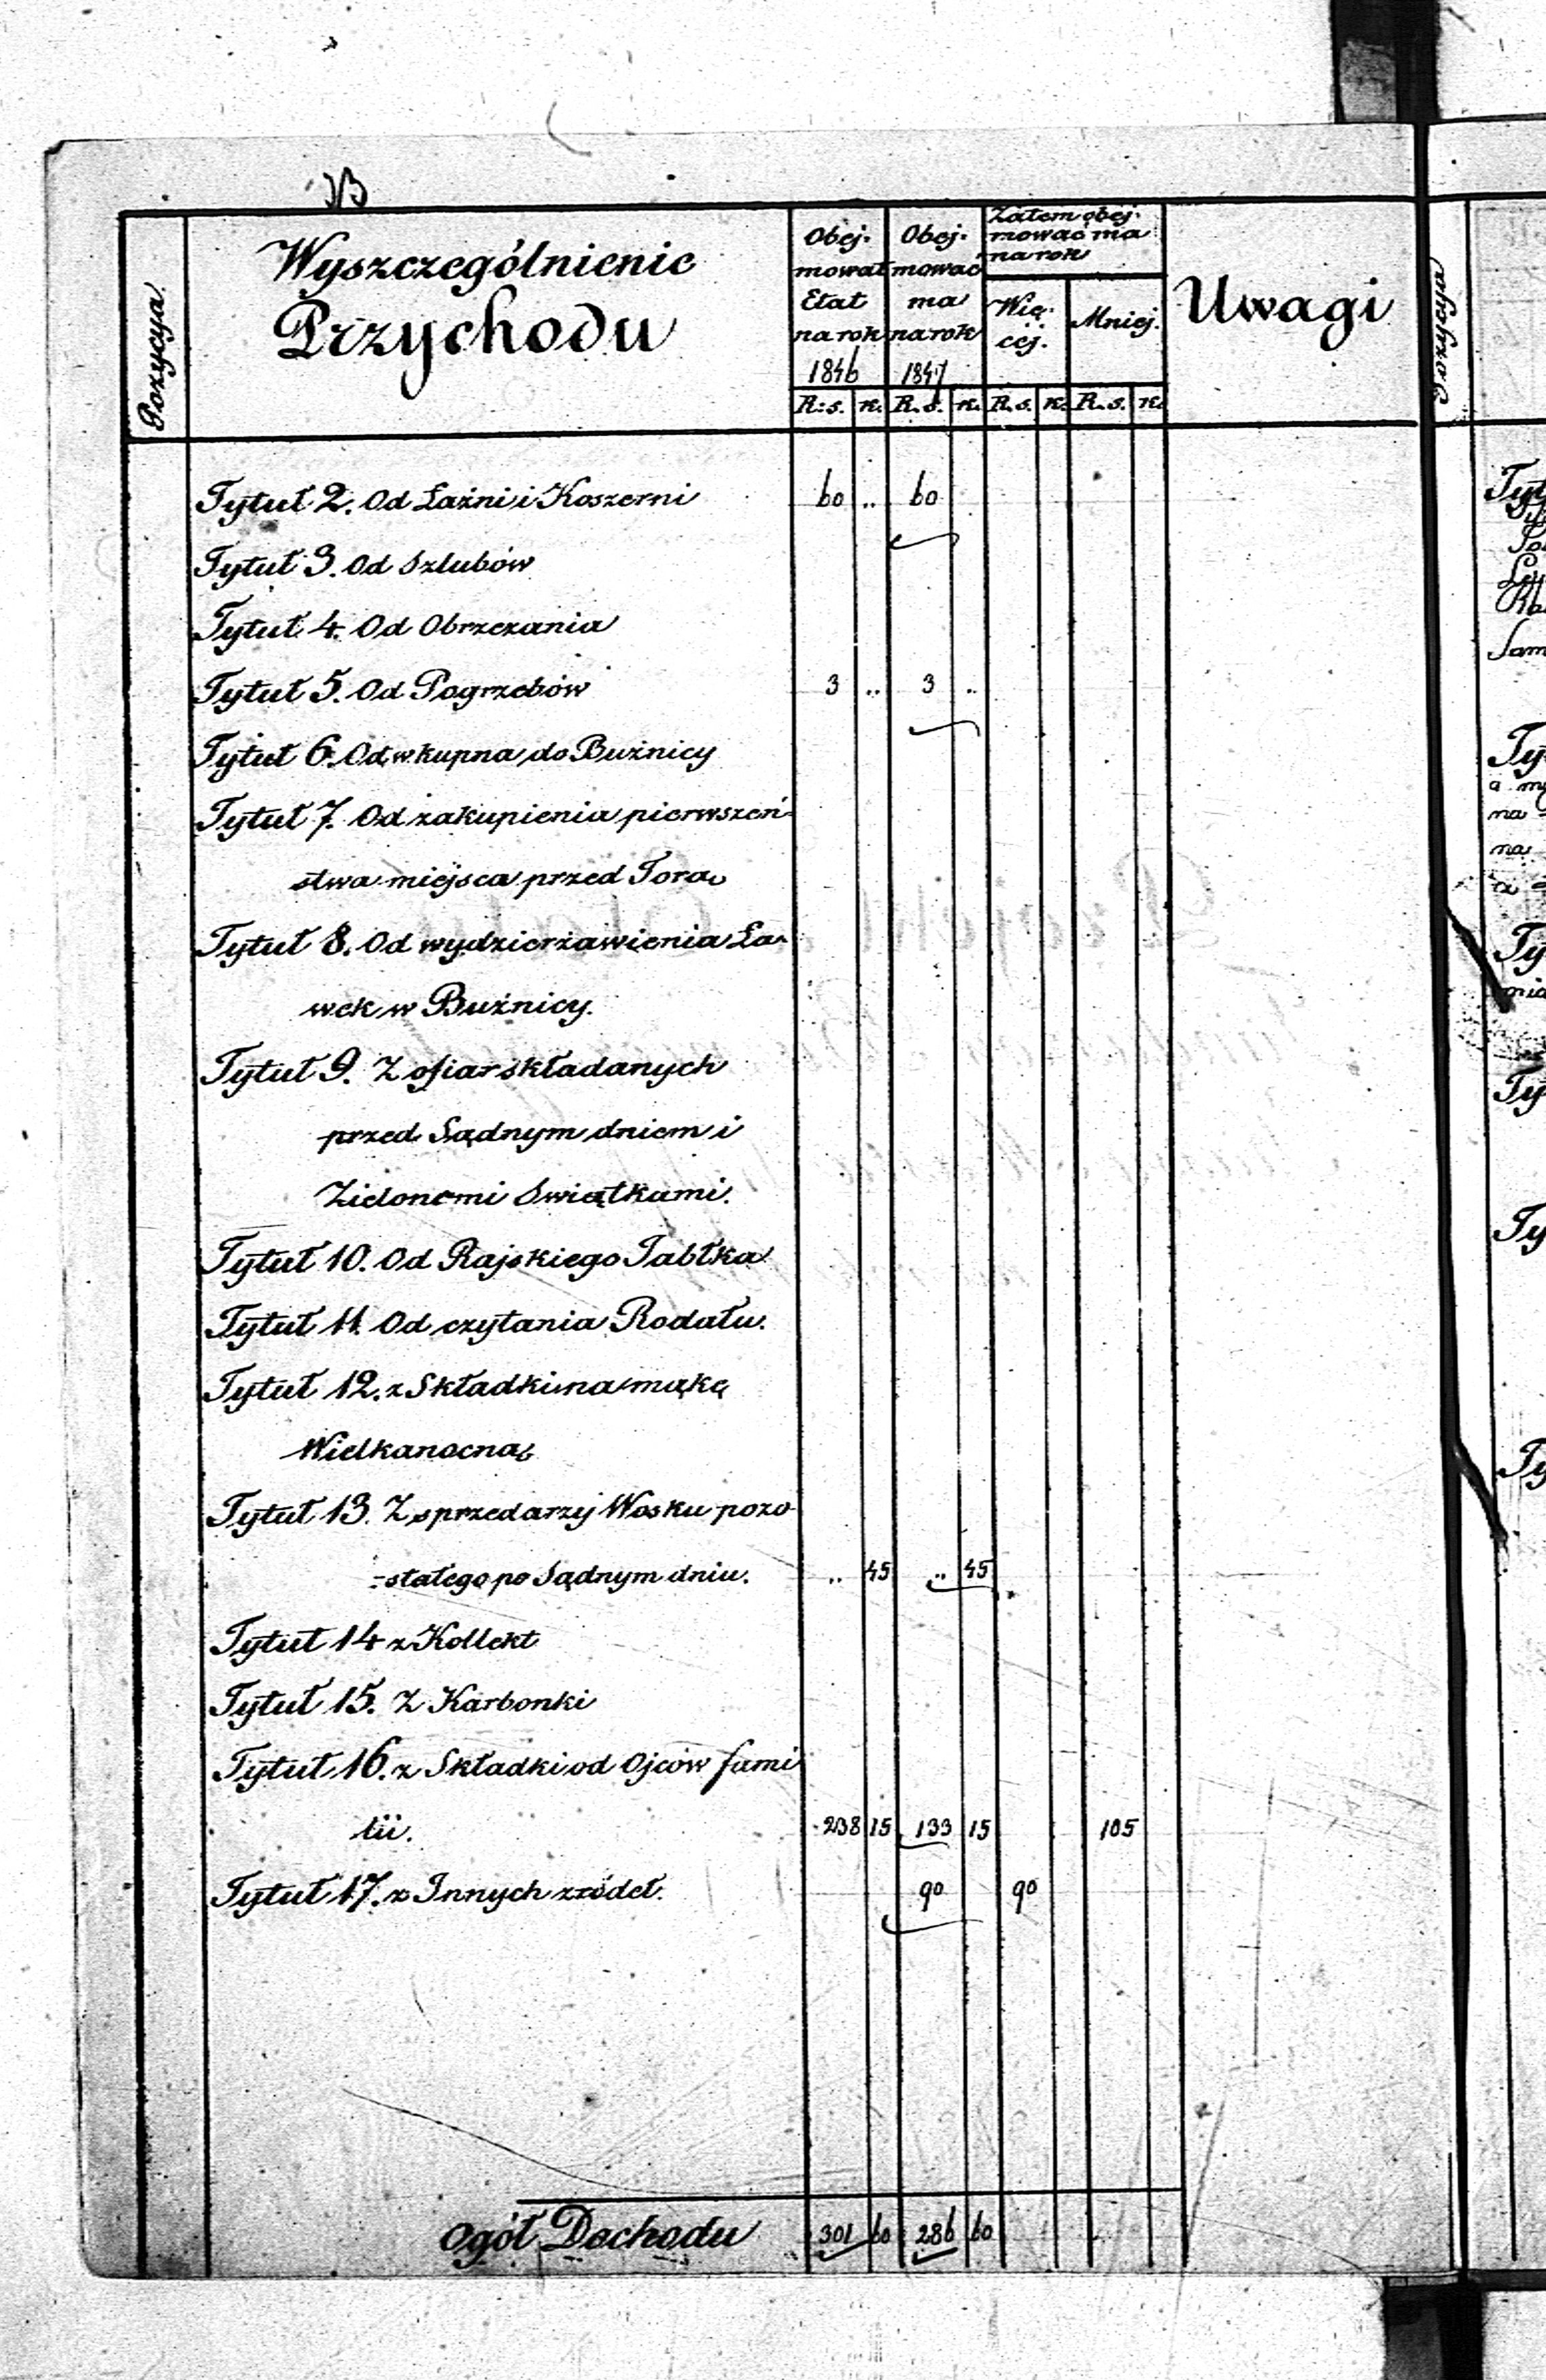 Pozycya
Wyszczególnienie
Przychodu
Obej-
mował
Etat
na rok
1846
Obej-
mować
ma
na rok
1847
Zatem obej-
mować ma
na rok
Wię-
cej.
Mniej.
Uwagi
R: s. k. R. s. k. R. s. k. R. s. k.
Tytuł 2. Od Łaźni i Koszerni 60 .. 60
Tytuł 3. Od Szlubów
Tytuł 4. Od Obrzezania
Tytuł 5. Od Pogrzebów 3 .. 3 ..
Tytuł 6. Od wkupna do Bużnicy
Tytuł 7. Od zakupienia pierwszeń-
stwa miejsca przed Torą
Tytuł 8. Od wydzierżawienia Ła-
wek w Bużnicy.
Tytuł 9. Z ofiar składanych
przed Sądnym dniem i
Zielonemi Swiątkami.
Tytuł 10. Od Rajskiego Jabłka
Tytuł 11. Od czytania Rodału.
Tytuł 12. z Składki na mąkę
Wielkanocną
Tytuł 13. Z sprzedarzy Wosku pozo
-stałego po Sądnym dniu. .. 45 .. 45
Tytuł 14 z Kollekt
Tytuł 15. Z Karbonki
Tytuł 16. z Składki od Ojców fami
lii. 238 15 133 15 105
Tytuł 17. z Innych zródeł. 90 90
Ogół Dochodu 301 60 286 60
Pozycya